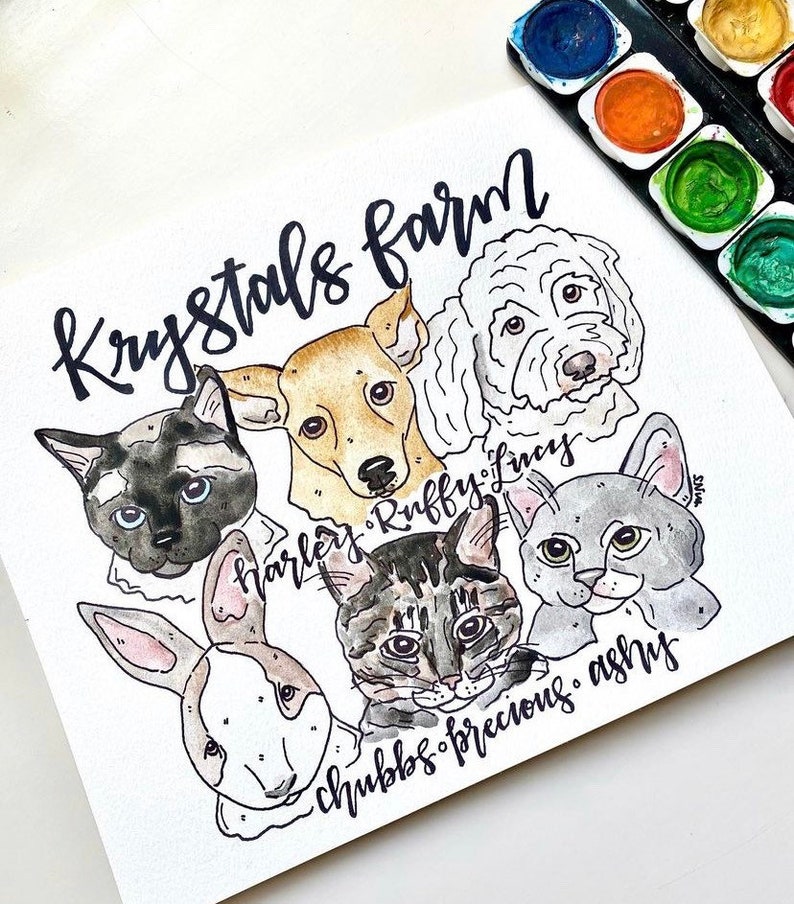 Krystals farm
harley • Ruffy • Lucy
SNM
chubbs • precious • ashy